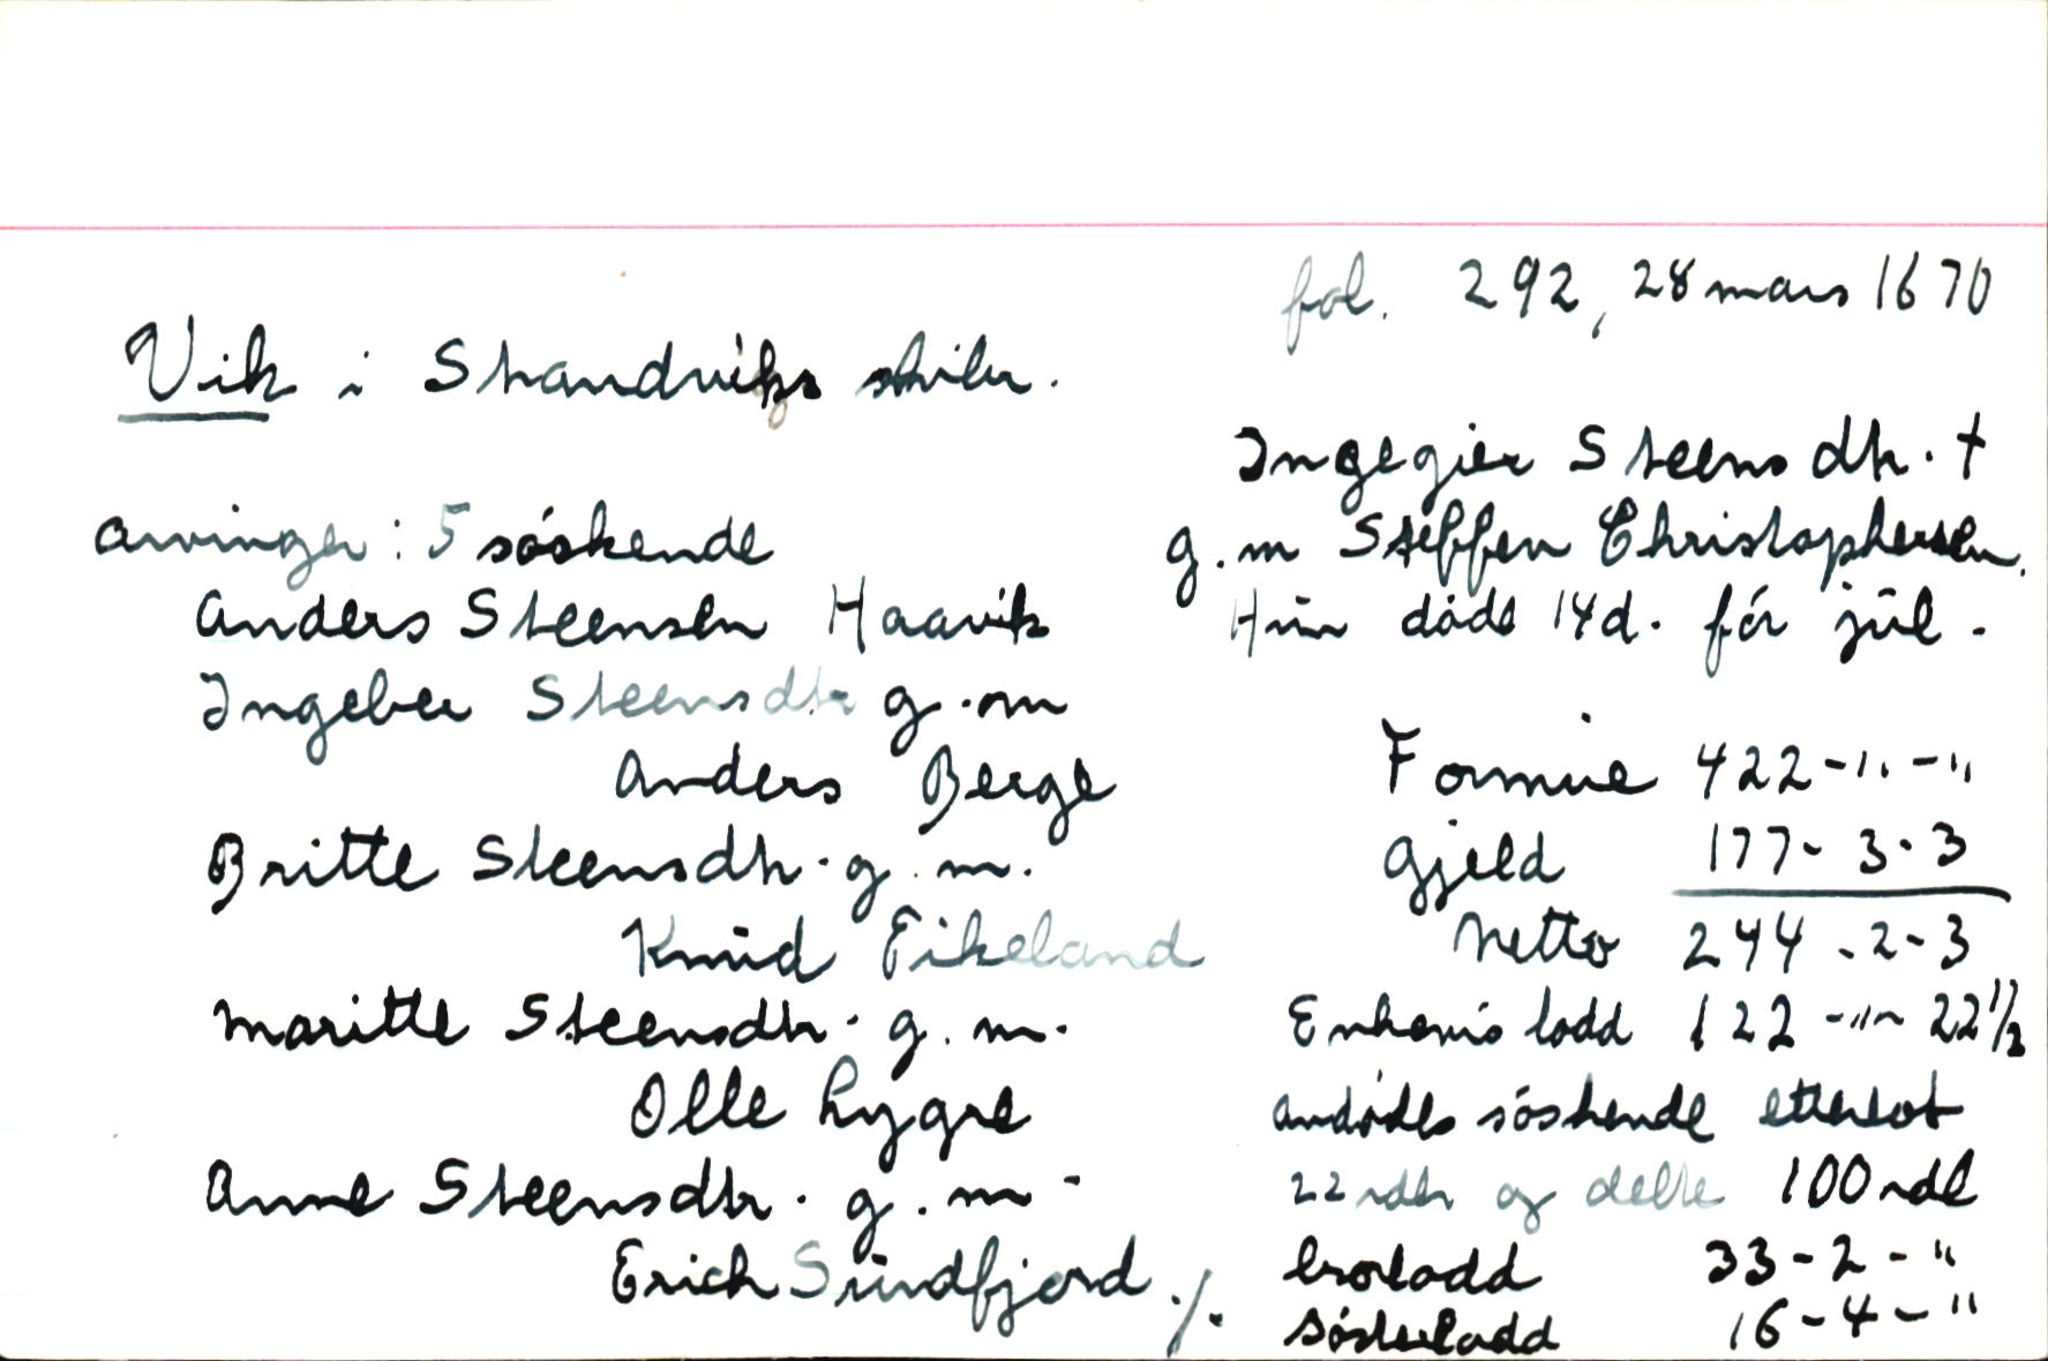 fol. 292, 28 mars 1670
Vik i Strandviks skiber.
Ingegier Steens dtr. †
g.m Steffen Christophersen.
Hun døde 14d. før jul.
Formue 422-"-"
Gjeld 177-3-3
Netto 244-2-3
Enkem's lodd 122-"-22 1/2
avdødes søskende etterlot
22 rdlr og delte 100 rdl
brorlodd 33-2-"
søsterlodd 16-4-"
arvinger: 5 søskende
Anders Steensen Haavik
Ingeber Steensdtr g.m
Anders Berge
Britte Steensdtr. g.m.
Knud Eikeland
Maritte Steensdtr. g.m.
Olle Lygre
Anne Steensdtr. g.m.
Erich Sundfjord ./.